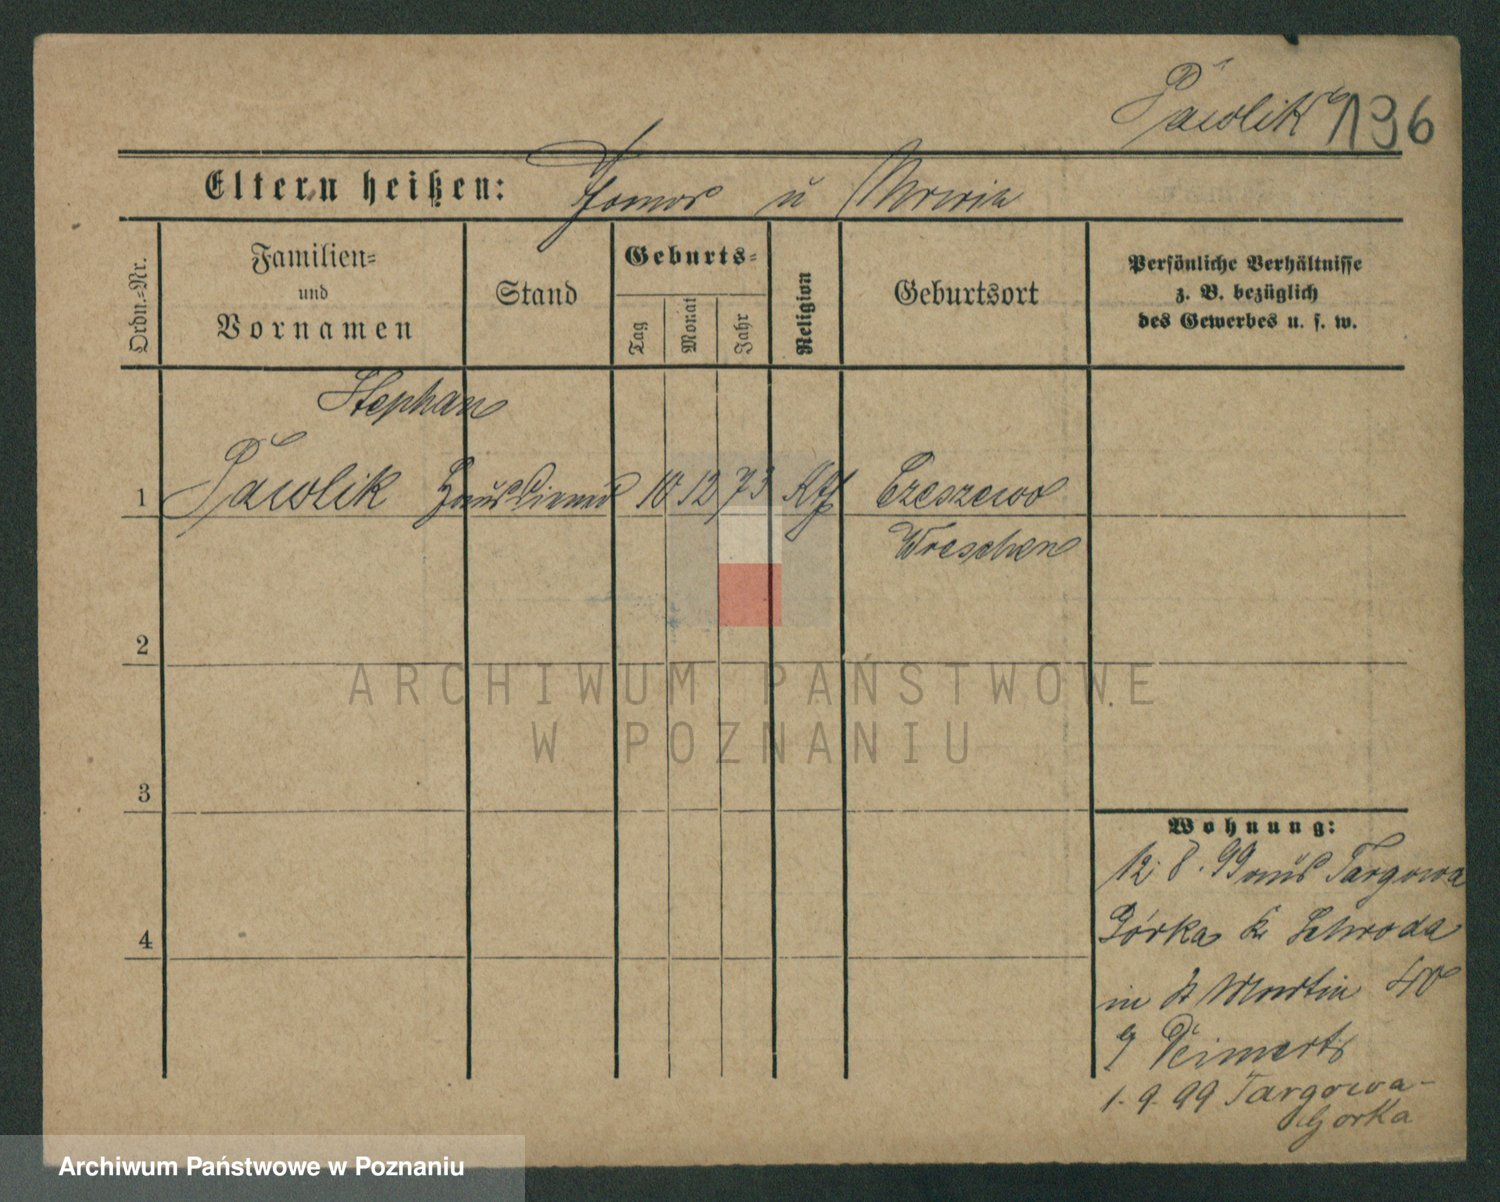 Pawlik 196
Eltern heißen: Thomas u Maria
Ordn.-Nr.
Familien-
und
Vornamen
Stand
Geburts-
Tag
Monat
Jahr
Religion
Geburtsort
Persönliche Verhältnisse
z. B. bezüglich
des Gewerbes u. s. w.
Stephan
1 Pawlik Hausdiener 10 12 73 Kth Czeszewo
Wreschen
2
ARCHIWUM PAŃSTWOWE
W POZNANIU
3
Wohnung:
12. 8. 99 aus Targowa
Górka Kr Schroda
4
in St Martin 40
1. 9. 99 Targowa-
Gorka
Archiwum Państwowe w Poznaniu